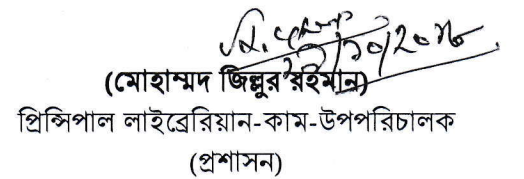 (মোহাম্মদ জিল্লুর রহমান)
প্রিন্সিপাল লাইব্রেরিয়ান-কাম-উপপরিচালক
(প্রশাসন)